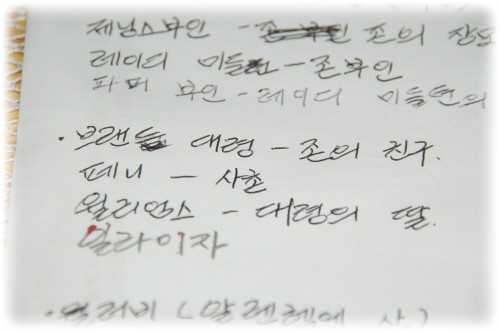 제닝스부인 - 존의 장모
레이디 미들턴 - 존부인
파머 부인 - 레이디 미들턴의
· 브랜든 대령 - 존의 친구.
페니 - 사촌
윌리엄스 - 대령의 딸.
일라이자